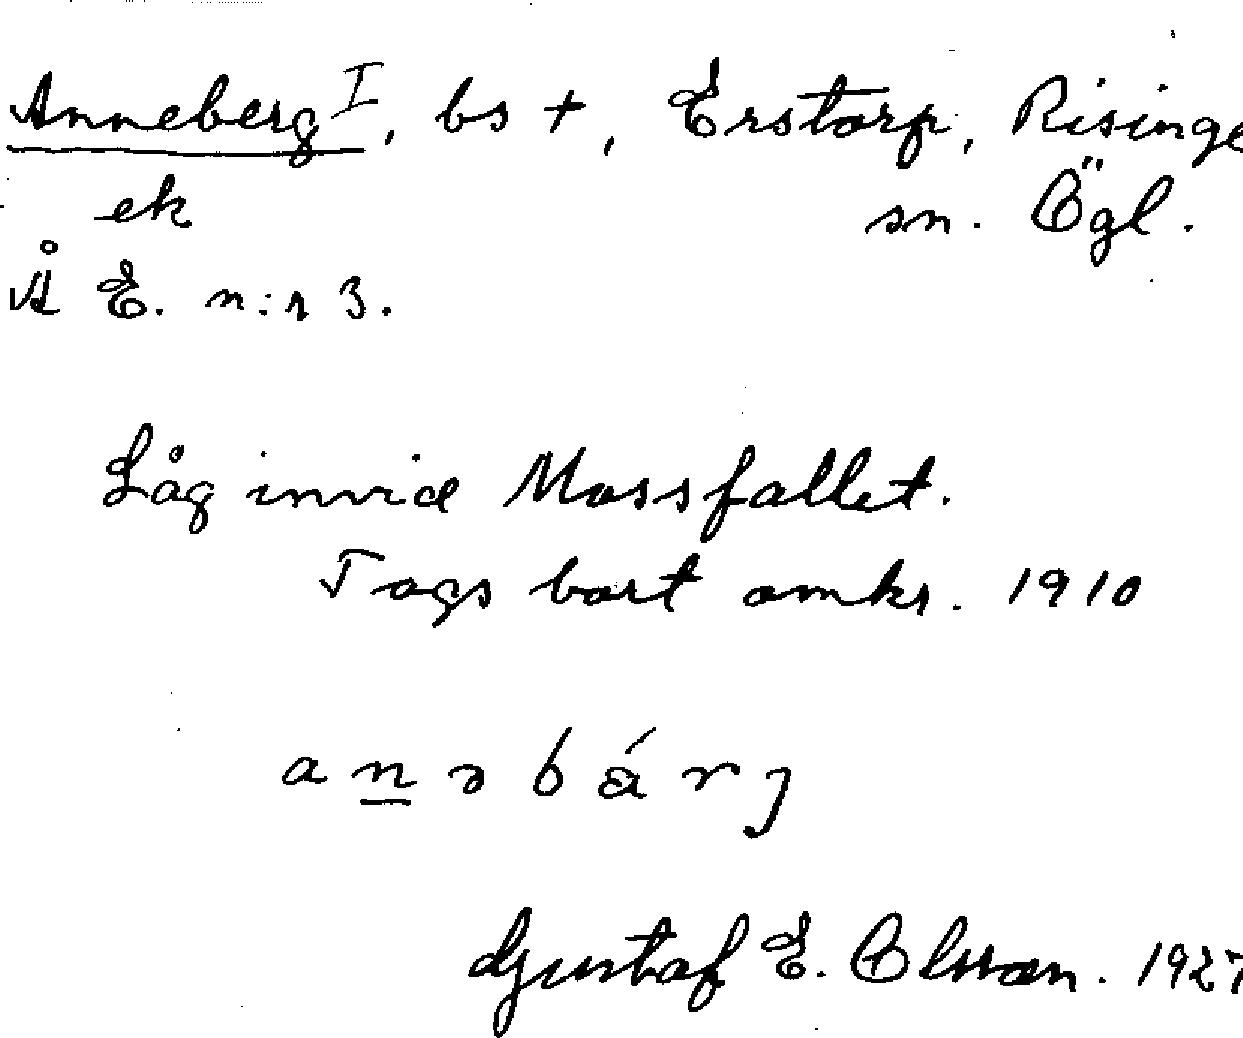 Anneberg I, bs +, Erstorp, Risinge
ek sn. Ögl.
Å E. n:r 3.
Låg invid Mossfallet.
Togs bort omkr. 1910
anəbá̈rj
Gustaf E. Olsson. 1927